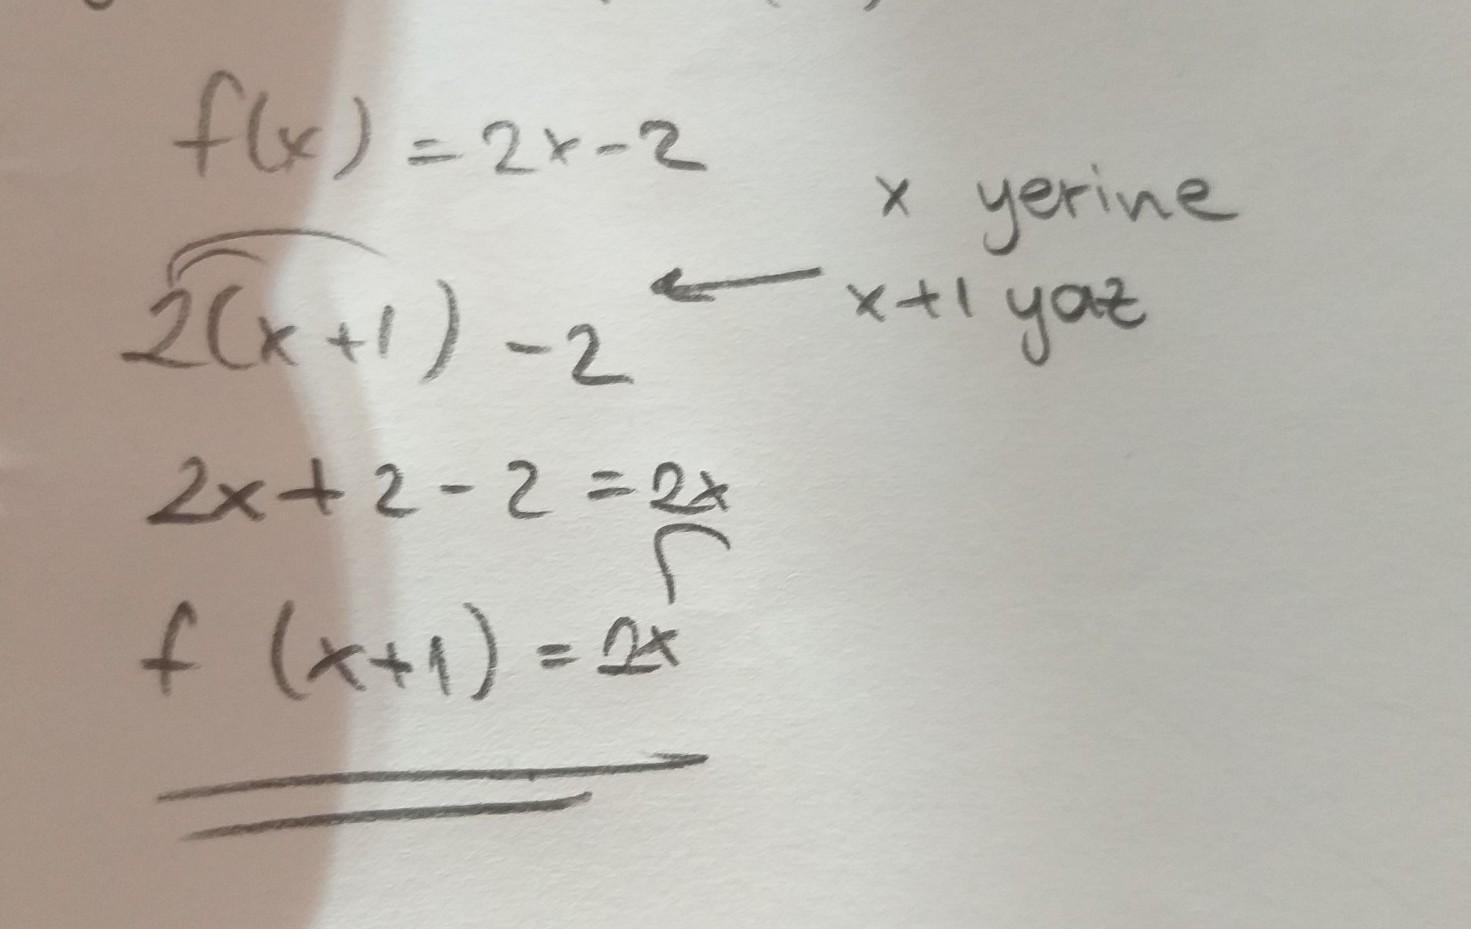 f(x) = 2x-2
x yerine
x+1 yaz
2(x+1) -2
2x+2-2 = 2x
f (x+1) = 2x